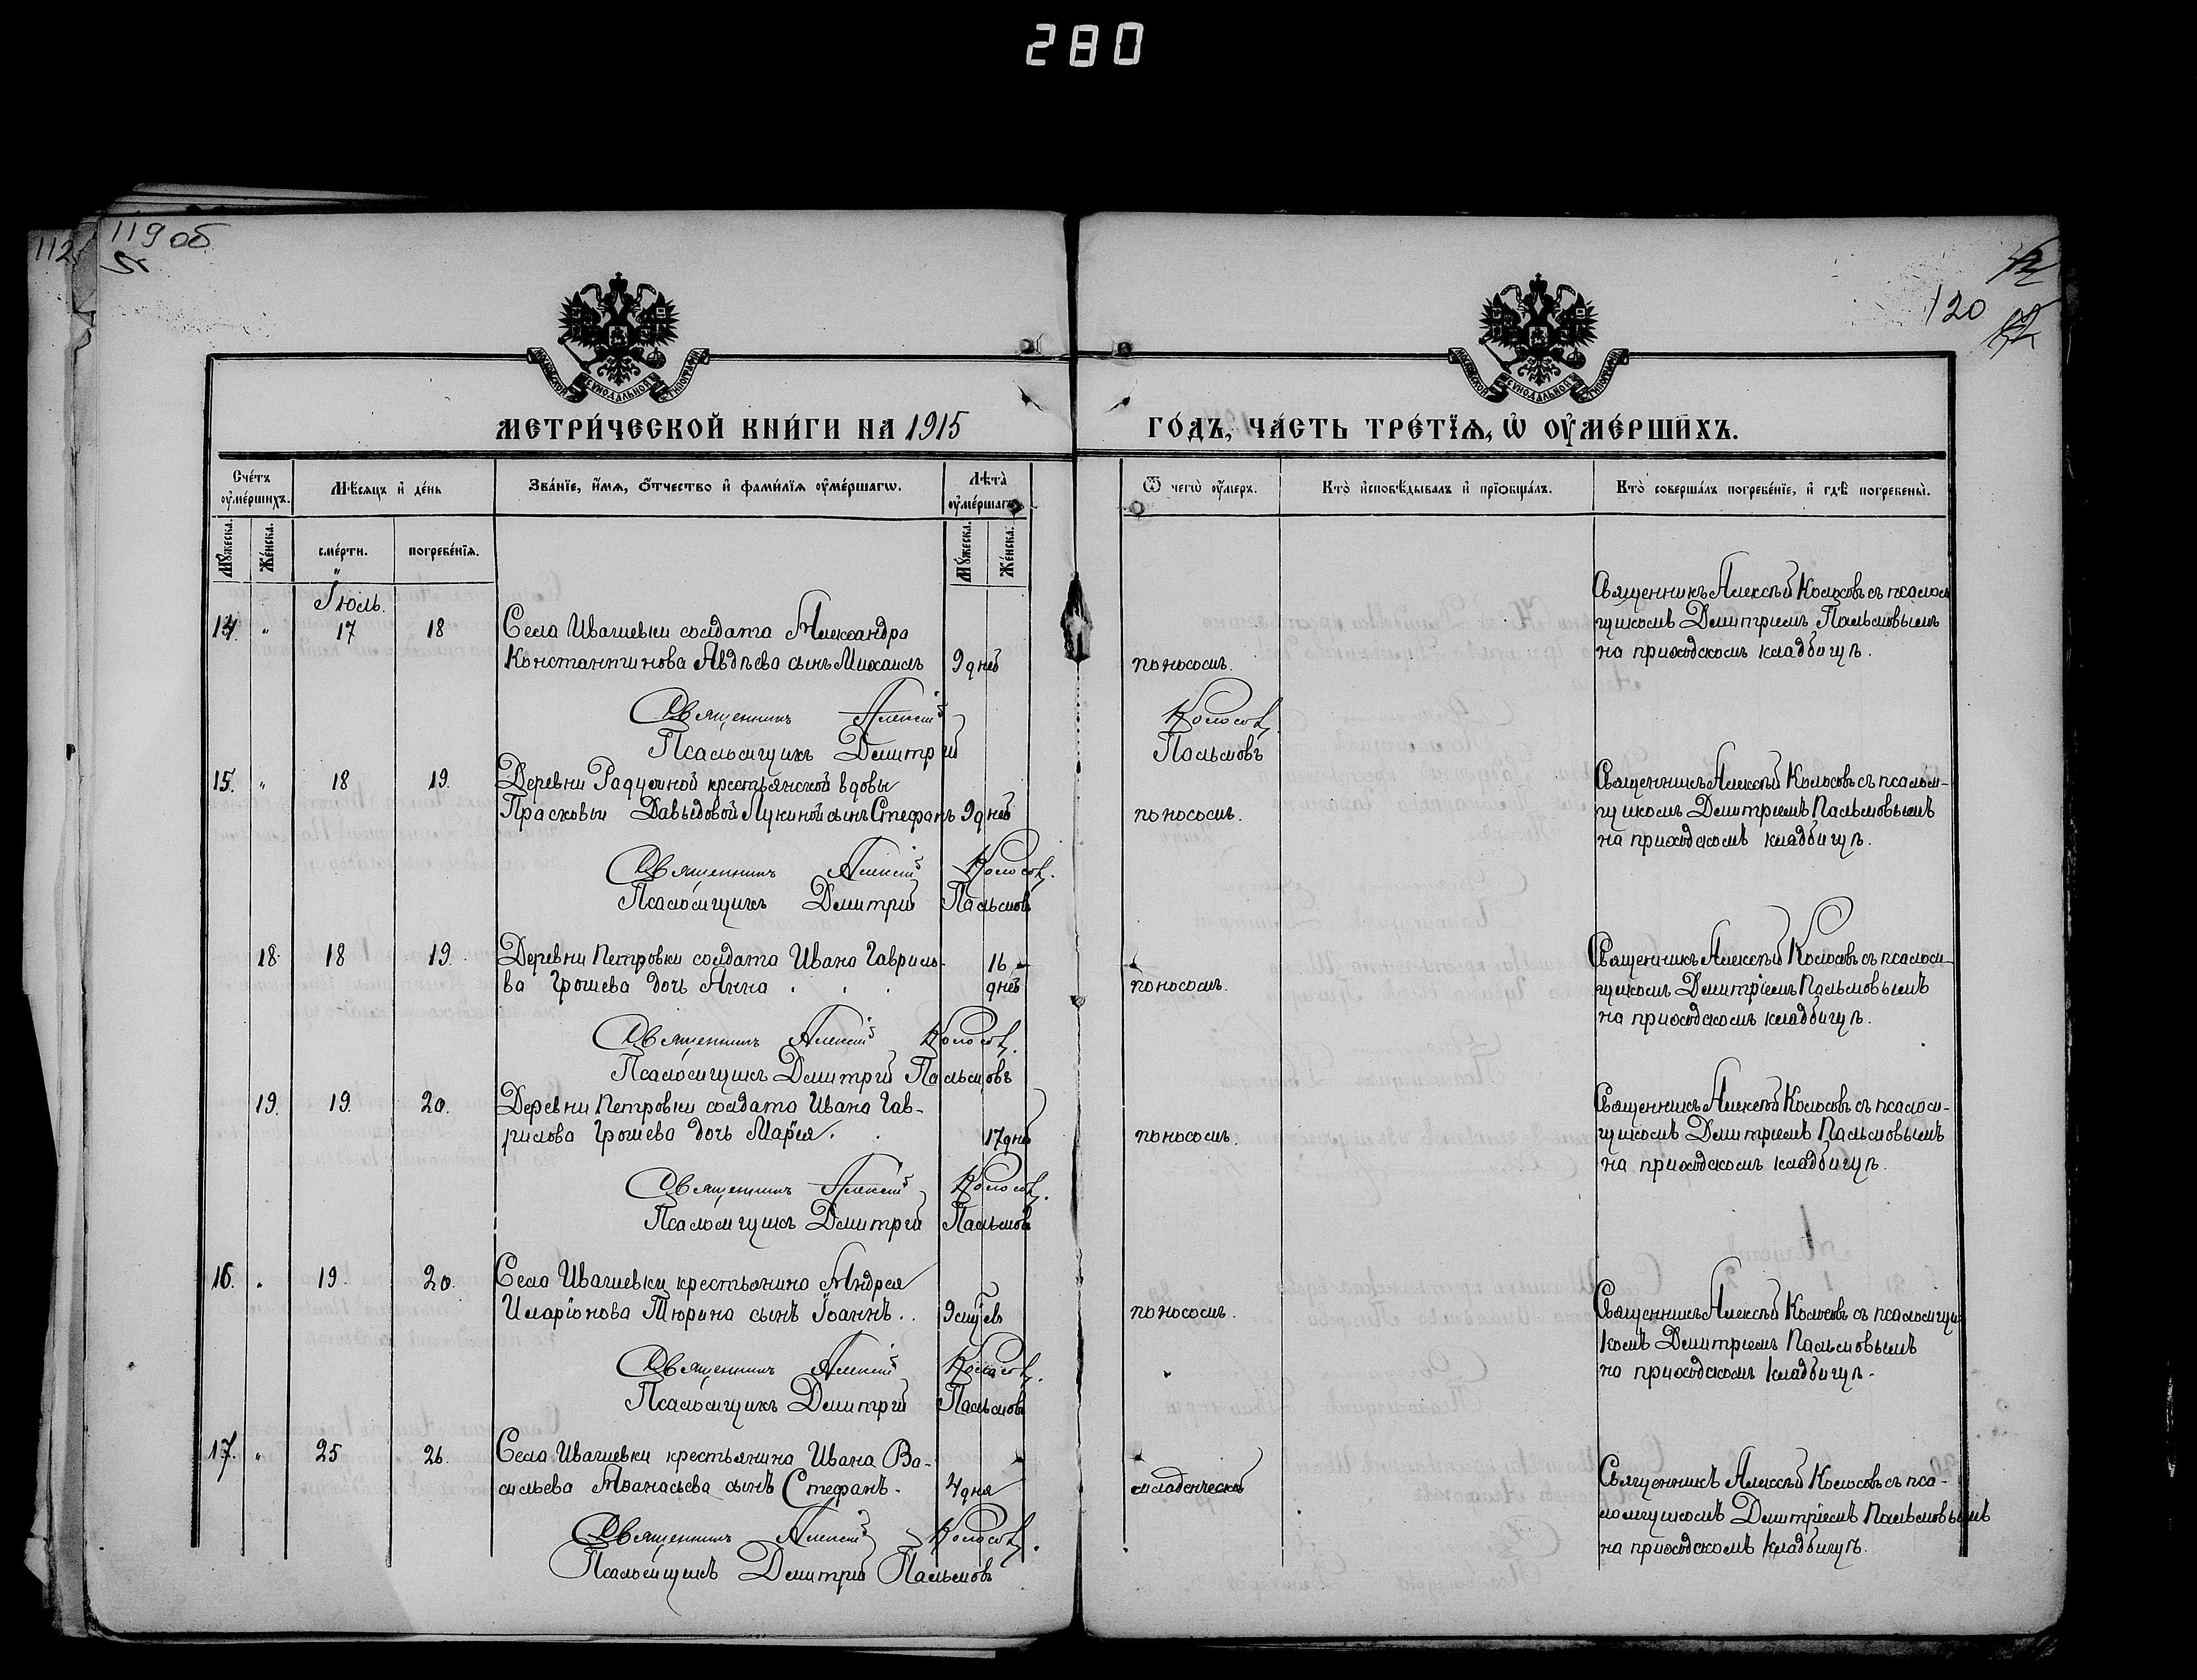 280
112
119 об
120
МЕТРИ́ЧЕСКОЙ КНИ́ГИ НА 1915 ГО́ДЪ, ЧА́СТЬ ТРЕ́ТЇѦ, Ѡ҆ ОУ҆МЕ́РШИХЪ.
Сче́тъ оу҆ме́ршихъ.
Мѣ́сѧцъ и҆ де́нь
Зва́нїе, и҆́мѧ, ѻ҆́тчество и҆ фами́лїѧ оу҆ме́ршагѡ.
Лѣ́та оу҆ме́ршагѡ
Ѿ чегѡ̀ оу҆́меръ.
Кто̀ и҆сповѣ́дывалъ и҆ прїѻбща́лъ.
Кто̀ соверша́лъ погребе́нїе, и҆ гдѣ̀ погребены̀.
Мꙋ́жеска.
Же́нска.
сме́рти.
погребе́нїѧ.
Мꙋ́жеска.
Же́нска.
Іюль.
14. " 17 18 Села Ивашевки солдата Александра
Константинова Авдѣева сынъ Михаилъ 9 дней поносомъ.
Священникъ Алексѣй Колосовъ съ псалом
щикомъ Димитриемъ Пальмовымъ
на приходскомъ кладбищѣ.
Священникъ Алексій Колосовъ.
Псаломщикъ Димитрий Пальмовъ
15. " 18 19. Деревни Радушной крестьянской вдовы
Прасковьи Давыдовой Лукиной сынъ Стефанъ 9 дней поносомъ.
Священникъ Алексѣй Колосовъ съ псалом-
щикомъ Димитриемъ Пальмовымъ
на приходскомъ кладбищѣ.
Священникъ Алексій Колосовъ.
Псаломщикъ Димитрий Пальмовъ
18. 18 19. Деревни Петровки солдата Ивана Гаврило-
ва Грошева дочь Анна . . . 16 дней поносомъ.
Священникъ Алексѣй Колосовъ съ псалом-
щикомъ Димитріемъ Пальмовымъ
на приходскомъ кладбищѣ.
Священникъ Алексій Колосовъ.
Псаломщикъ Димитрий Пальмовъ
19. 19. 20. Деревни Петровки солдата Ивана Гав-
рилова Грошева дочь Марія. . 17 дней поносомъ.
Священникъ Алексѣй Колосовъ съ псалом-
щикомъ Димитриемъ Пальмовымъ
на приходскомъ кладбищѣ.
Священникъ Алексій Колосовъ.
Псаломщикъ Димитрий Пальмовъ
16. " 19. 20. Села Ивашевки крестьянина Андрея
Иларіонова Тюрина сынъ Іоаннъ . . 9 мцѣв поносомъ.
Священникъ Алексѣй Колосовъ съ псаломщи
комъ Димитриемъ Пальмовымъ
на приходскомъ кладбищѣ.
Священникъ Алексій Колосовъ.
Псаломщикъ Димитрий Пальмовъ
17. " 25 26. Села Ивашевки крестьянина Ивана Ва-
сильева Аѳанасьева сынъ Стефанъ. 4 дня младенческой
Священникъ Алексѣй Колосовъ съ пса-
ломщикомъ Димитріемъ Пальмовымъ
на приходскомъ кладбищѣ.
Священникъ Алексій Колосовъ.
Псаломщикъ Димитрий Пальмовъ